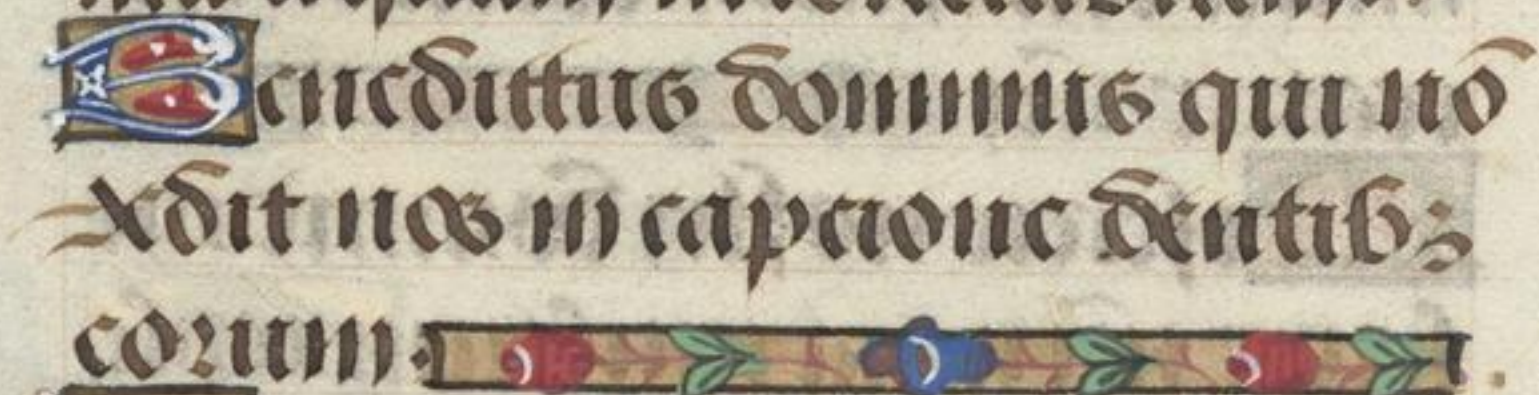 Benedictus dominus qui nō
xdit nos in capcione dentib;
eorum.